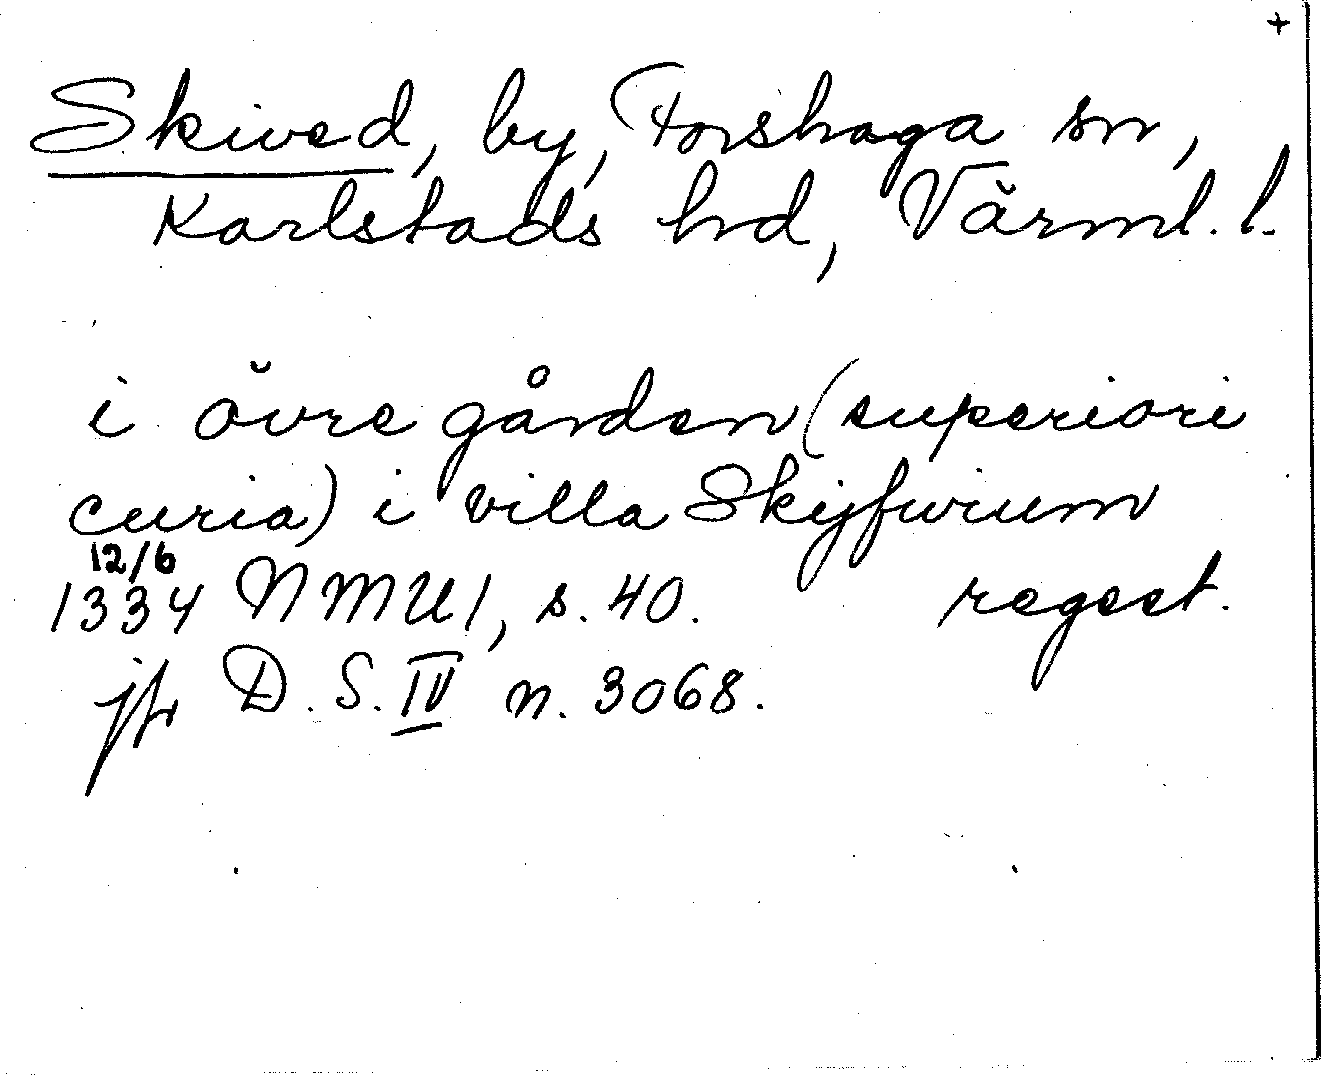 +
Skived, by, Forshaga sn,
Karlstads hd, Värml. l.
i övre gården (superiori
curia) i villa Skijfwium
12/6
1334 NMU1, s. 40. regest.
jfr D.S. IV n. 3068.